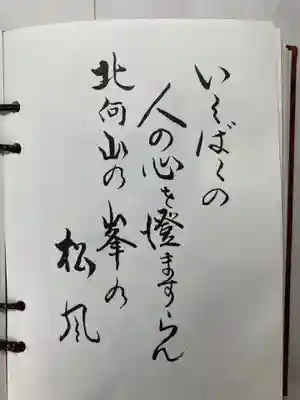 いくばくの
人の心を澄ますらん
北向山の峯の
松風